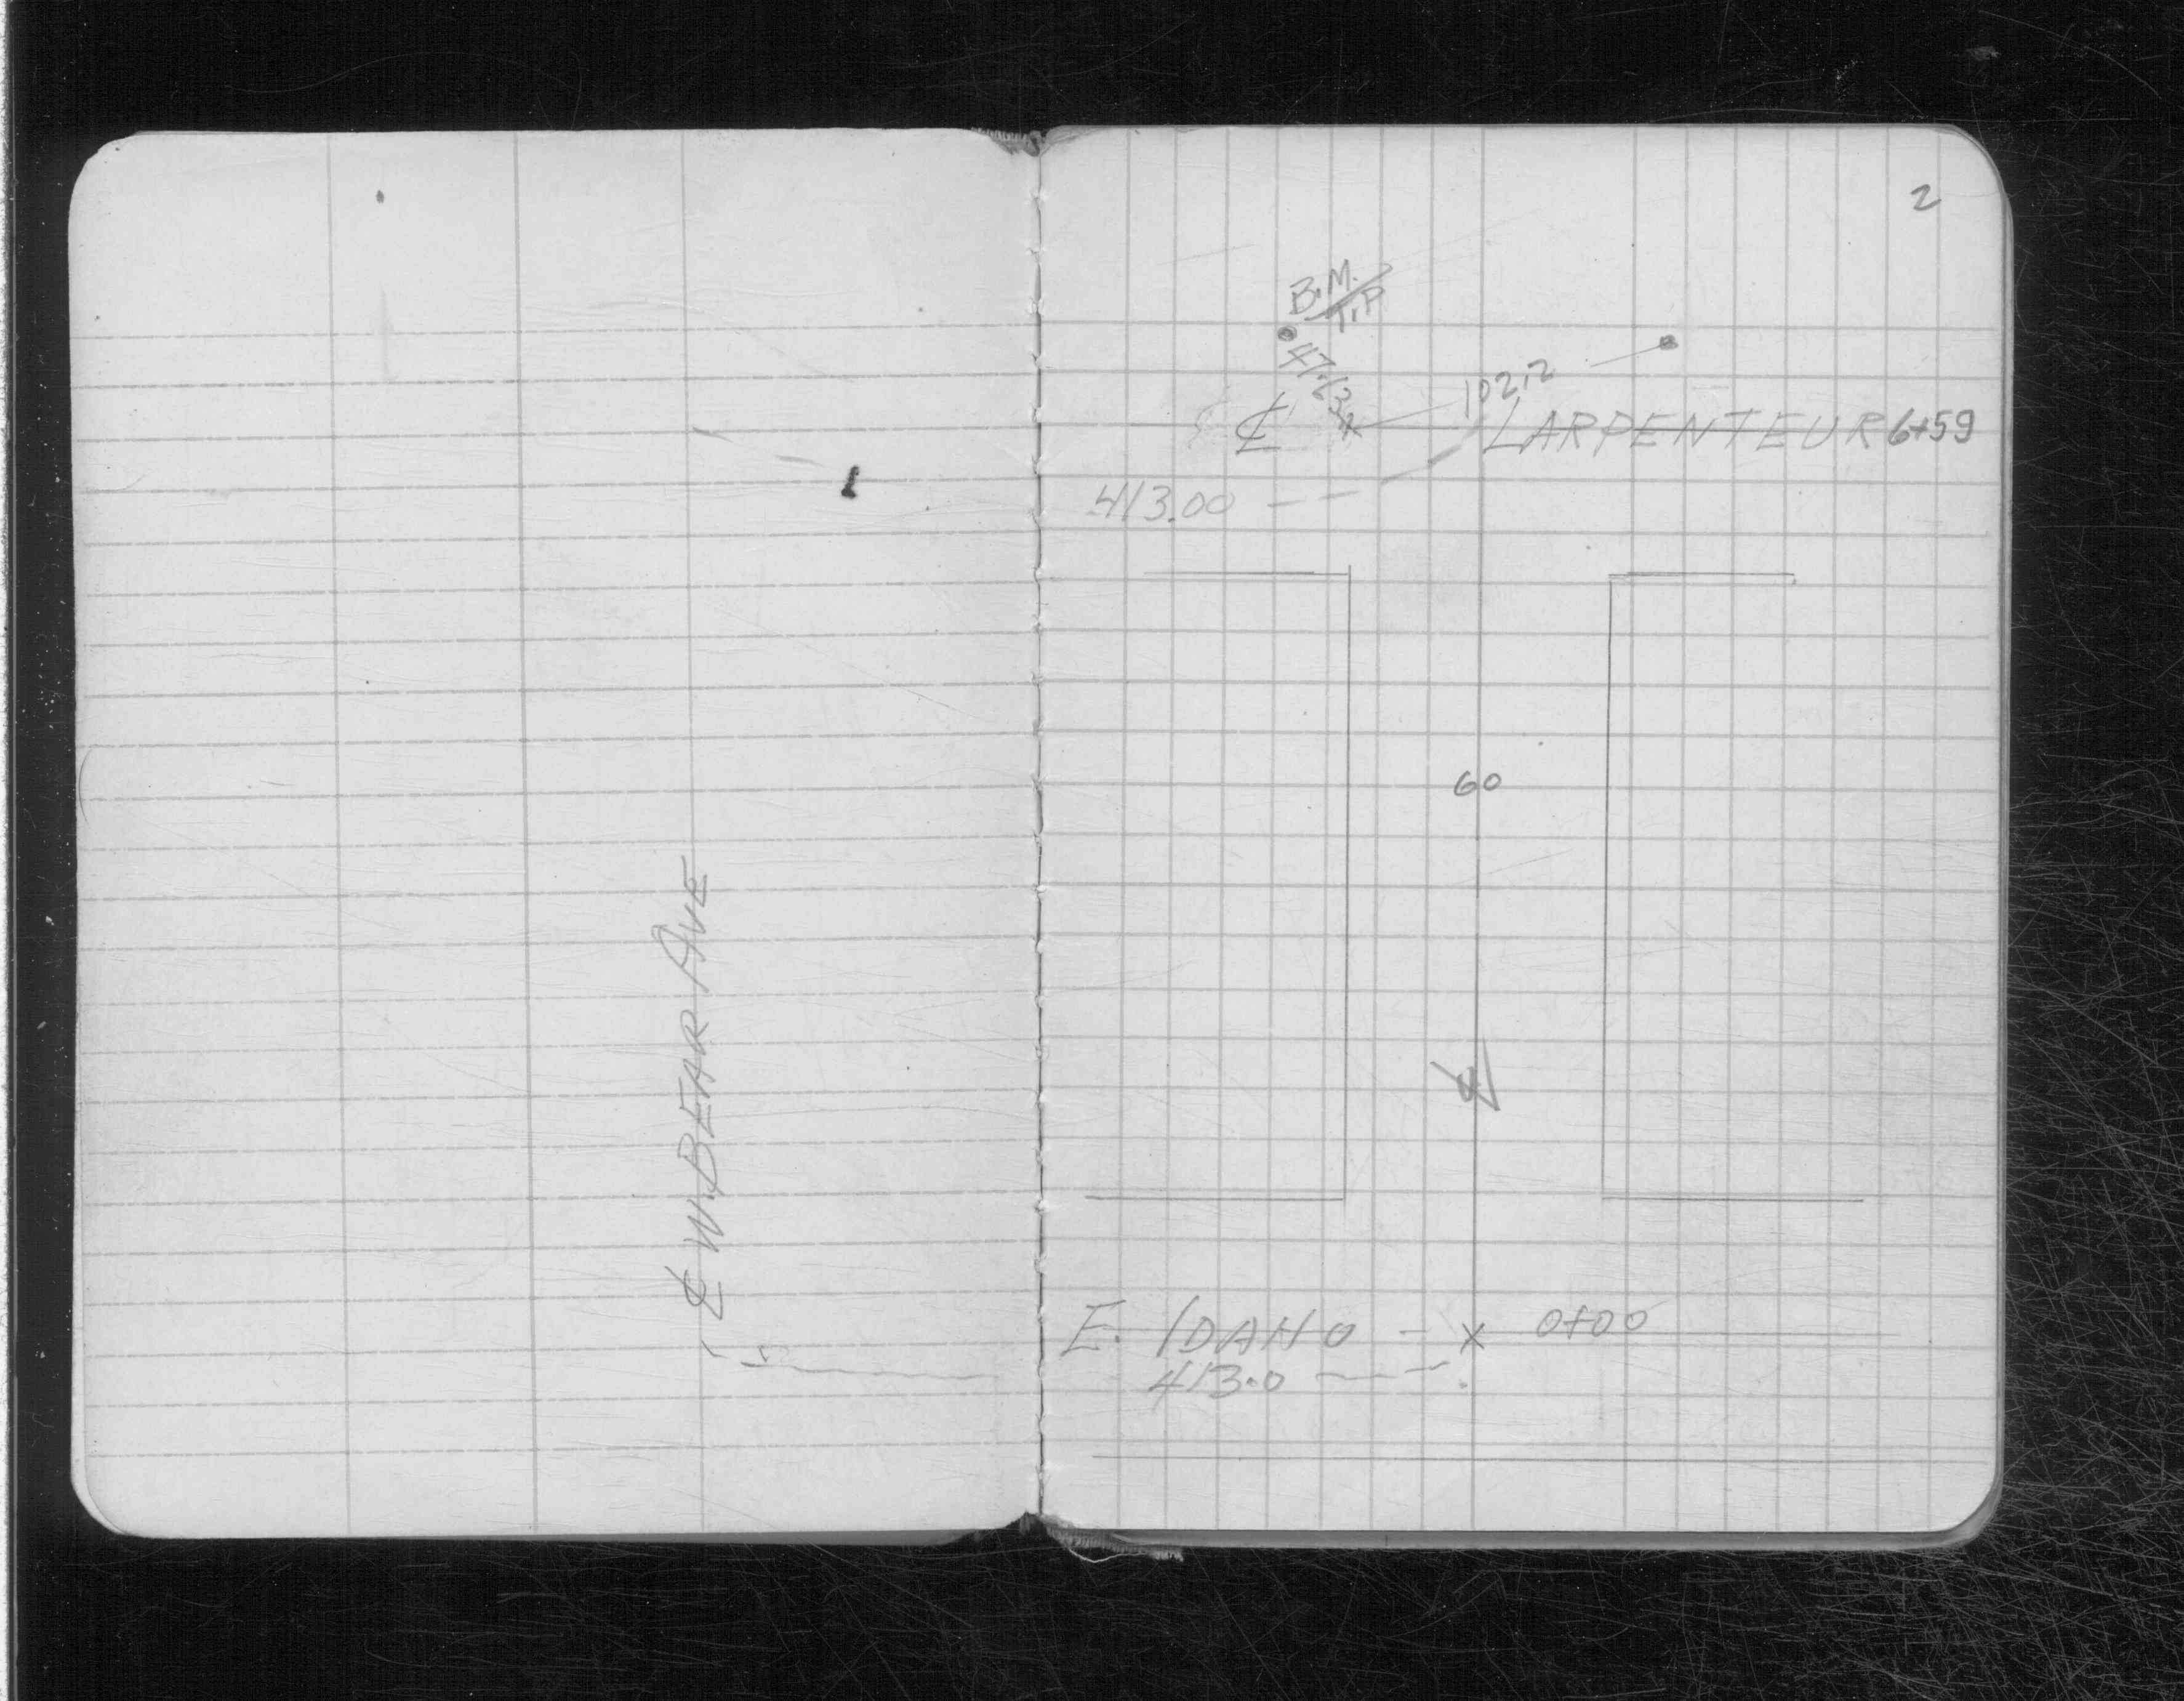 ℄ W. BEAR AVE
2
B.M.
T.P
47.23
102.2
℄ LARPENTEUR 6+59
413.00
60
℄
E. IDAHO - x 0+00
413.0